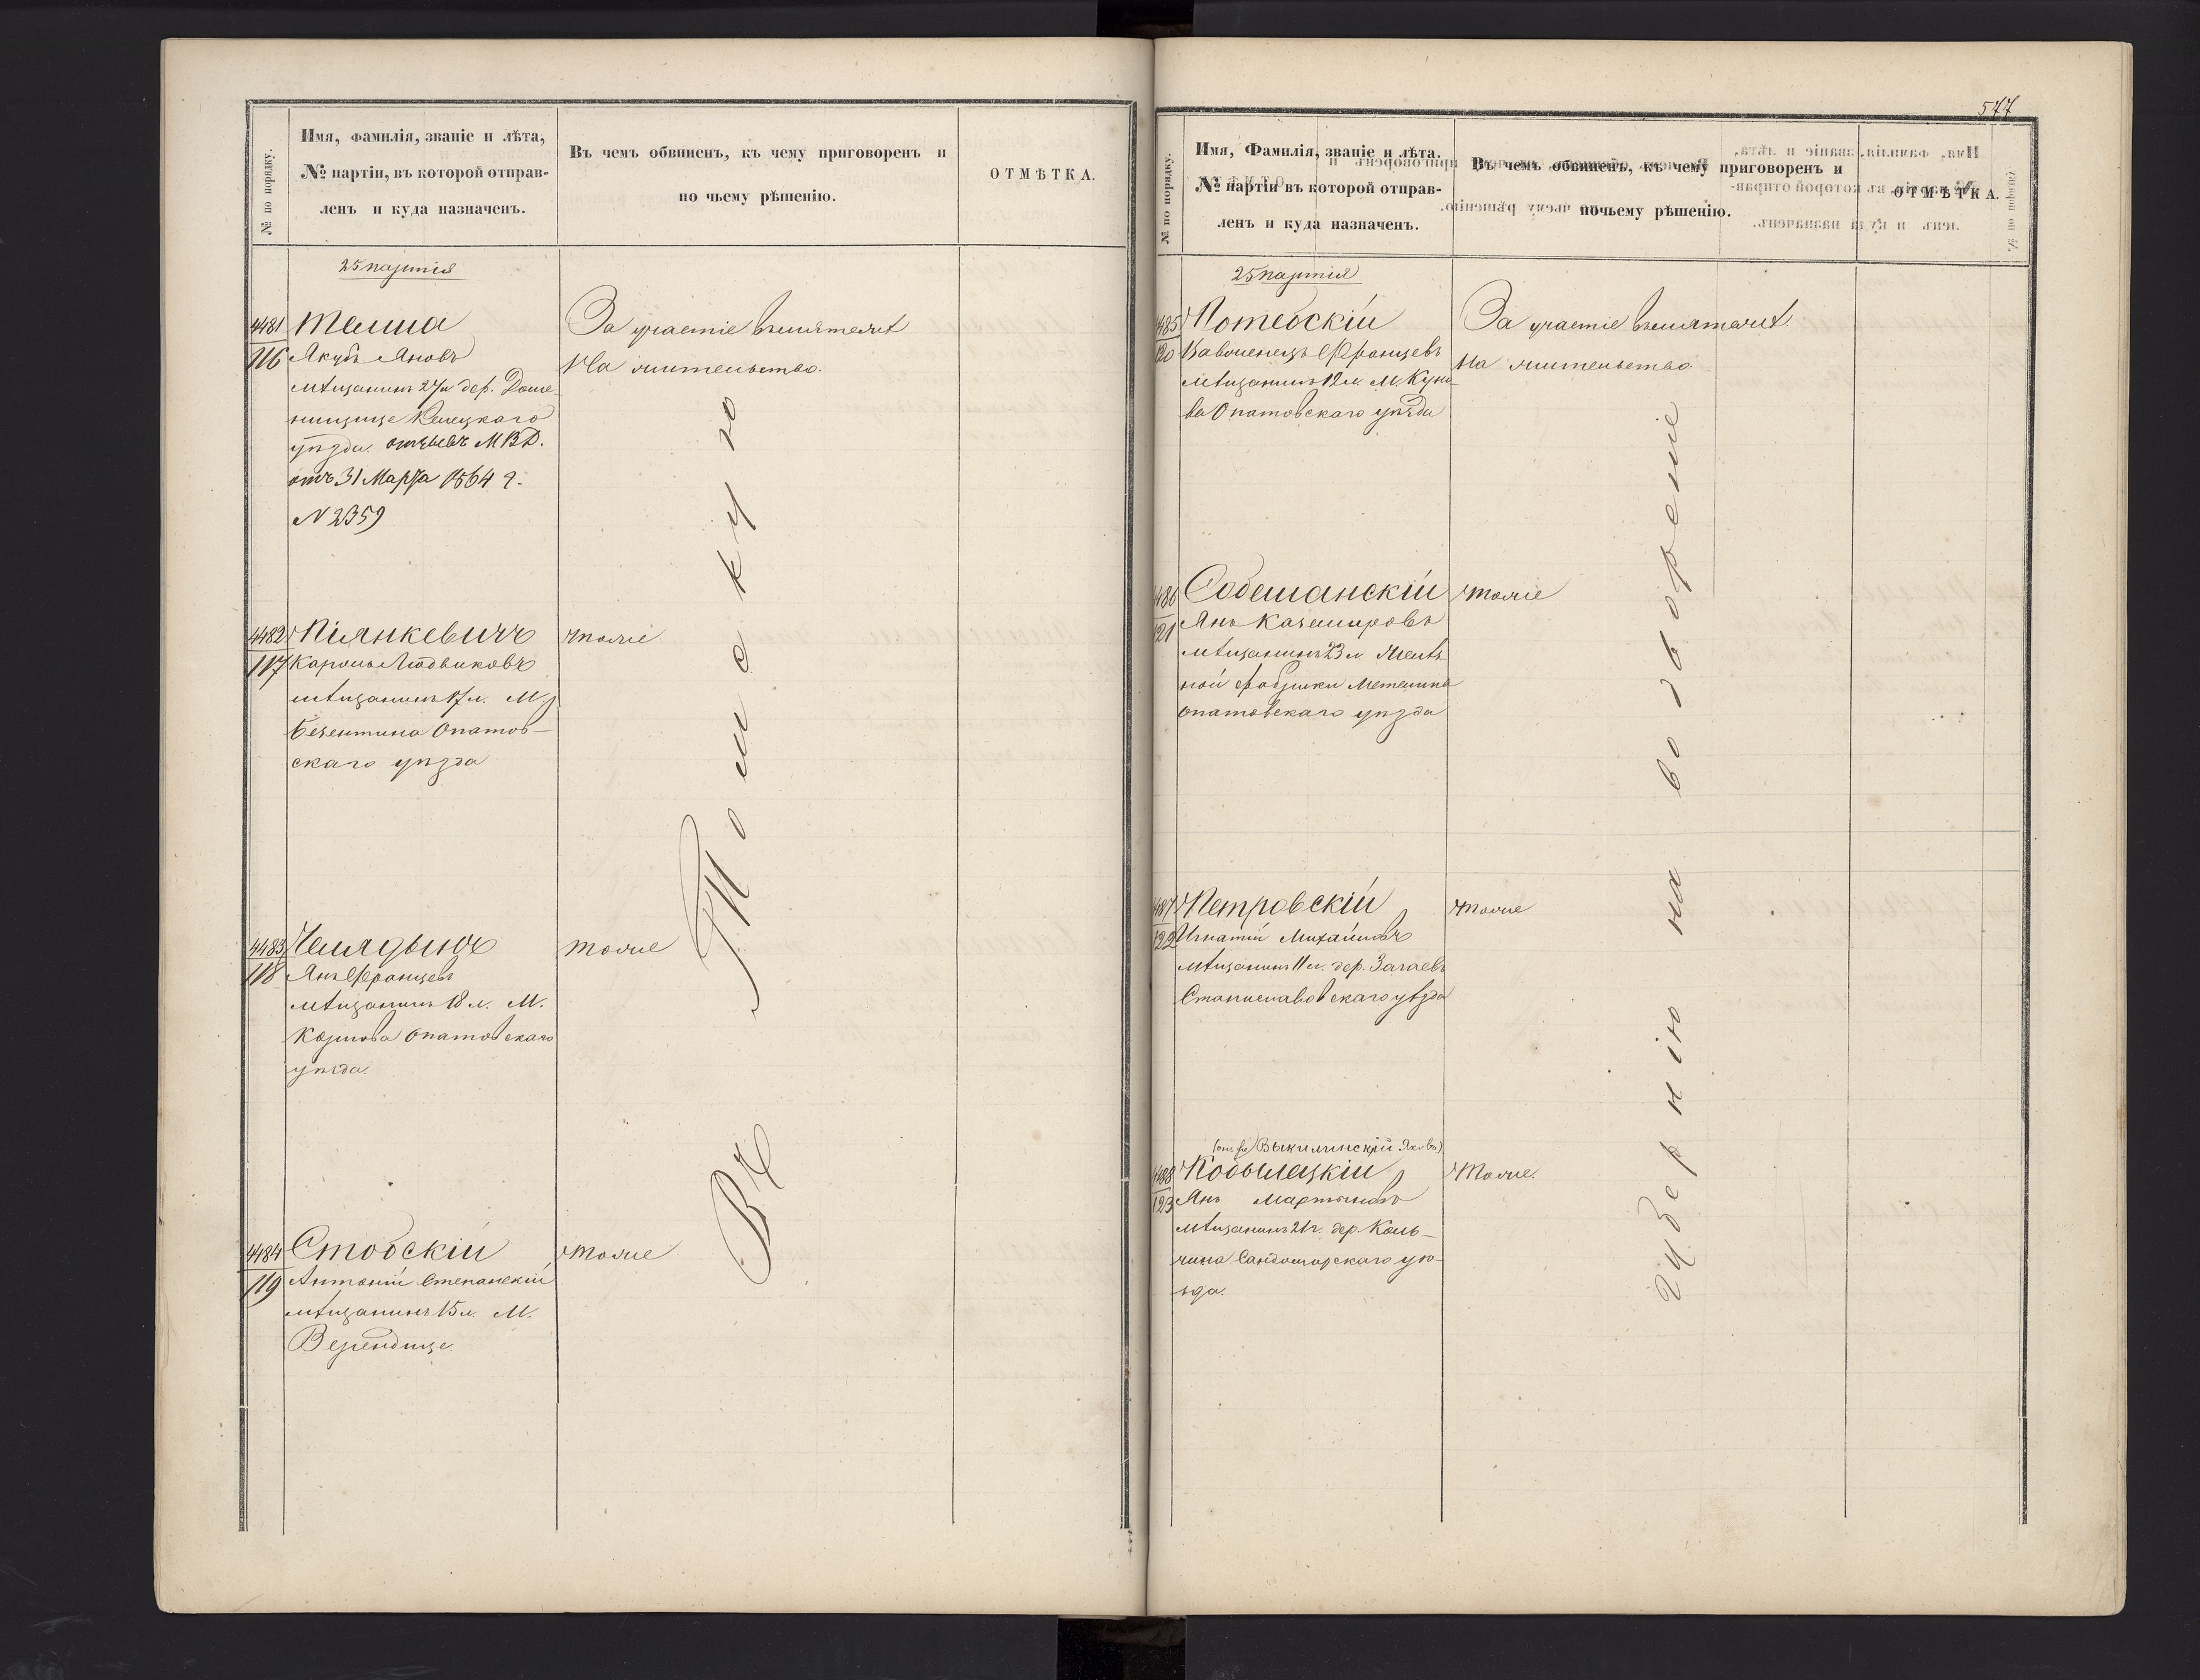 № по порядку.
Имя, фамилія, званіе и лѣта,
№ партіи, въ которой отправ-
ленъ и куда назначенъ.
Въ чемъ обвиненъ, къ чему приговоренъ и
по чьему рѣшенію.
ОТМѢТКА.
25 партія
4481
116
Якубъ Яновъ
мѣщанинъ 27 л. дер.
Келецкаго
уѣзда. отзывъ МВД.
отъ 31 Марта 1864 г.
N 2359
За участіе въ мятежѣ
На жительство.
4482
117
Піянкевичъ
Кароль Людвиковъ
мѣщанинъ 17 л. М.
Бозентина Опатов-
скаго уѣзда
тоже
4483
118
Янъ Францевъ
мѣщанинъ 18 л. М.
Опатовскаго
уѣзда.
тоже
4484
119
Стобскій
Антоній
мѣщанинъ 15 л. М.
тоже
Въ Томскую
577
№ по порядку.
Имя, Фамилія, званіе и лѣта.
№ партіи въ которой отправ-
ленъ и куда назначенъ.
Въ чемъ обвиненъ, къ чему приговоренъ и
почьему рѣшенію.
ОТМѢТКА.
25 партія
4485
120
Потебскій
Францевъ
мѣщанинъ 12 л. М. Куно-
ва Опатовскаго уѣзда
За участіе въ мятежѣ.
На жительство.
4486
121
Собешанскій
Янъ Казимировъ
мѣщанинъ 23 л.
ной фабрики
Опатовскаго уѣзда
тоже
4487
122
Петровскій
Игнатій Михайловъ
мѣщанинъ 11 л. дер.
Станиславовскаго уѣзда
тоже
(онъ же Выкилинскій Яковъ)
4488
123
Кобылецкій
Янъ Мартыновъ
мѣщанинъ 21 г. дер. Коль-
Сандомирскаго уѣ-
зда.
Тоже.
губернію на водвореніе